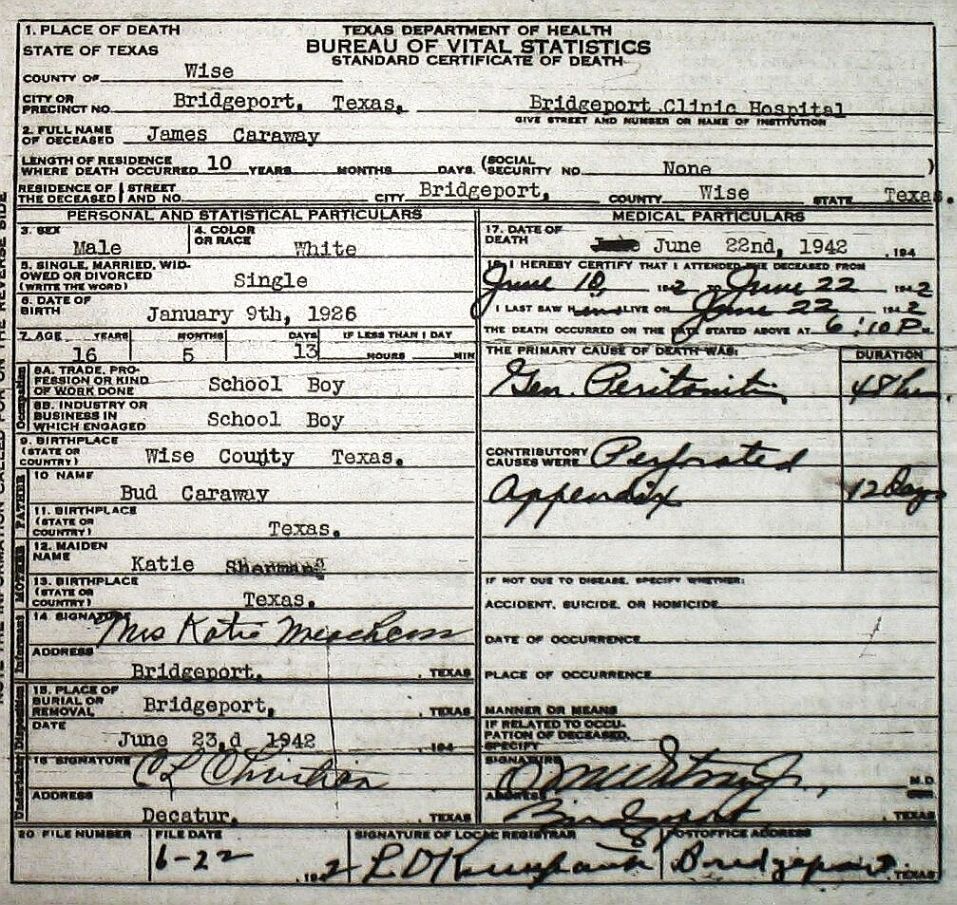 1. PLACE OF DEATH
STATE OF TEXAS
TEXAS DEPARTMENT OF HEALTH
BUREAU OF VITAL STATISTICS
STANDARD CERTIFICATE OF DEATH
COUNTY OF Wise
CITY OR PRECINCT NO. Bridgeport, Texas. Bridgeport Clinic Hospital
GIVE STREET AND NUMBER OR NAME OF INSTITUTION
2. FULL NAME OF DECEASED James Caraway
LENGTH OF RESIDENCE WHERE DEATH OCCURRED 10 YEARS MONTHS DAYS (SOCIAL SECURITY NO. None )
RESIDENCE OF THE DECEASED STREET AND NO. CITY Bridgeport, COUNTY Wise STATE Texas.
PERSONAL AND STATISTICAL PARTICULARS
3. SEX Male
4. COLOR OR RACE White
5. SINGLE, MARRIED, WIDOWED OR DIVORCED (WRITE THE WORD) Single
6. DATE OF BIRTH January 9th, 1926
7. AGE YEARS MONTHS DAYS IF LESS THAN 1 DAY
16 5 13 HOURS MIN
Occupation
8A. TRADE, PROFESSION OR KIND OF WORK DONE School Boy
8B. INDUSTRY OR BUSINESS IN WHICH ENGAGED School Boy
9. BIRTHPLACE (STATE OR COUNTRY) Wise County Texas.
FATHER
10 NAME Bud Caraway
11. BIRTHPLACE (STATE OR COUNTRY) Texas.
MOTHER
12. MAIDEN NAME Katie Sherman
13. BIRTHPLACE (STATE OR COUNTRY) Texas.
Informant
14 SIGNATURE Mrs Katie Meachem
ADDRESS Bridgeport. , TEXAS
Undertaker Disposition
15. PLACE OF BURIAL OR REMOVAL Bridgeport, , TEXAS
DATE June 23,d 1942 , 194
16 SIGNATURE C L Christian
ADDRESS Decatur. , TEXAS
MEDICAL PARTICULARS
17. DATE OF DEATH June 22nd, 1942 , 194
18. I HEREBY CERTIFY THAT I ATTENDED THE DECEASED FROM
June 10, 1942 TO June 22 1942
I LAST SAW HIM ALIVE ON June 22 1942
THE DEATH OCCURRED ON THE DATE STATED ABOVE AT 6:10 P M.
THE PRIMARY CAUSE OF DEATH WAS: DURATION
Gen. Peritonitis 48 hrs.
CONTRIBUTORY CAUSES WERE Perforated
Appendix 12 Days
IF NOT DUE TO DISEASE, SPECIFY WHETHER:
ACCIDENT, SUICIDE, OR HOMICIDE
DATE OF OCCURRENCE
PLACE OF OCCURRENCE
MANNER OR MEANS
IF RELATED TO OCCUPATION OF DECEASED, SPECIFY
SIGNATURE M.D.
ADDRESS Bridgeport TEXAS
20 FILE NUMBER
FILE DATE 6-22 , 1942
SIGNATURE OF LOCAL REGISTRAR L D
POSTOFFICE ADDRESS Bridgeport, TEXAS